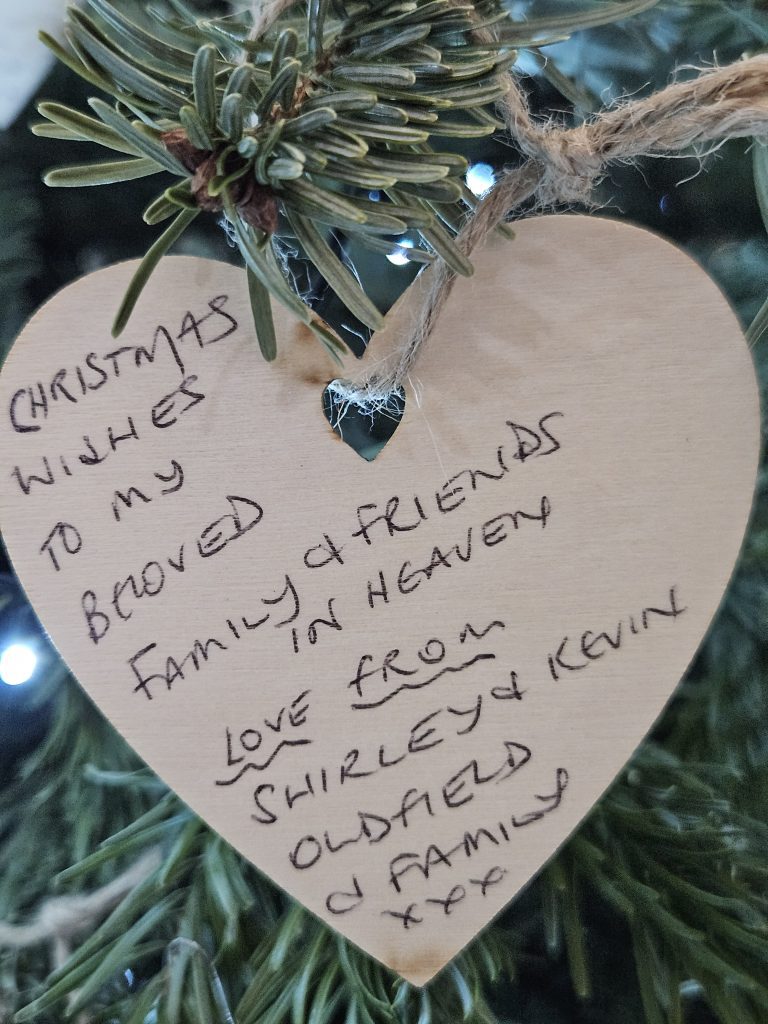 CHRISTMAS
WISHES
TO MY
BELOVED
FAMILY & FRIENDS
IN HEAVEN
LOVE FROM
SHIRLEY & KEVIN
OLDFIELD
& FAMILY
xxx